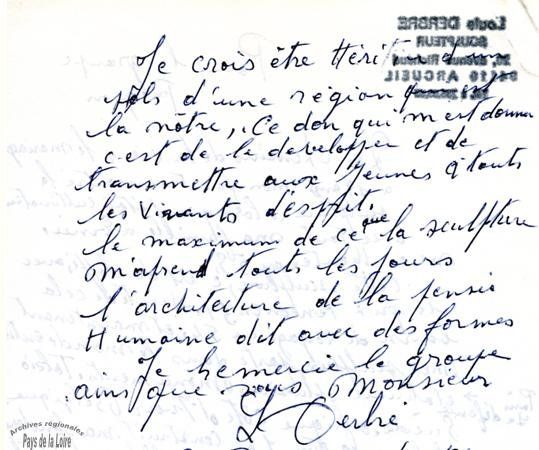 Louis DERBRÉ
SCULPTEUR
ARCUEIL
Je crois être Hérit d'un
fils d'une région
la nôtre, Ce don qui m'est donner
c'est de le developper et de
transmettre aux Jeunes à touts
les Vivants d'esprit.
le maximum de ce que la sculpture
m'aprend touts les jours
l'architecture de la pensée
Humaine dit avec des formes
Je remercie le groupe
ainsi que vous Monsieur
L Derbré
Archives régionales
Pays de la Loire